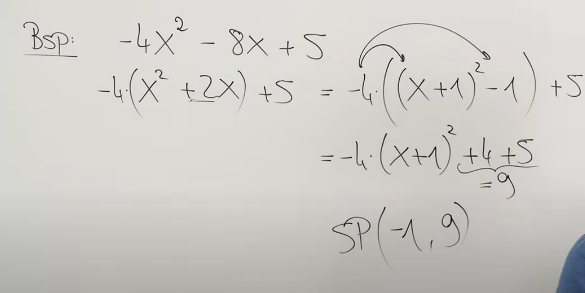 Bsp: -4x² - 8x + 5
-4·(x² + 2x) + 5 = -4·((x+1)² - 1) + 5
= -4·(x+1)² + 4 + 5
= 9
SP(-1, 9)